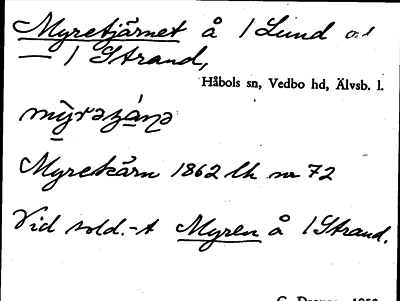 Myretjärnet å 1 Lund och
— 1 Strand,
Håbols sn, Vedbo hd, Älvsb. l.
Myretkärn 1862 lk nr 72
Vid sold.-t Myren å 1 Strand.